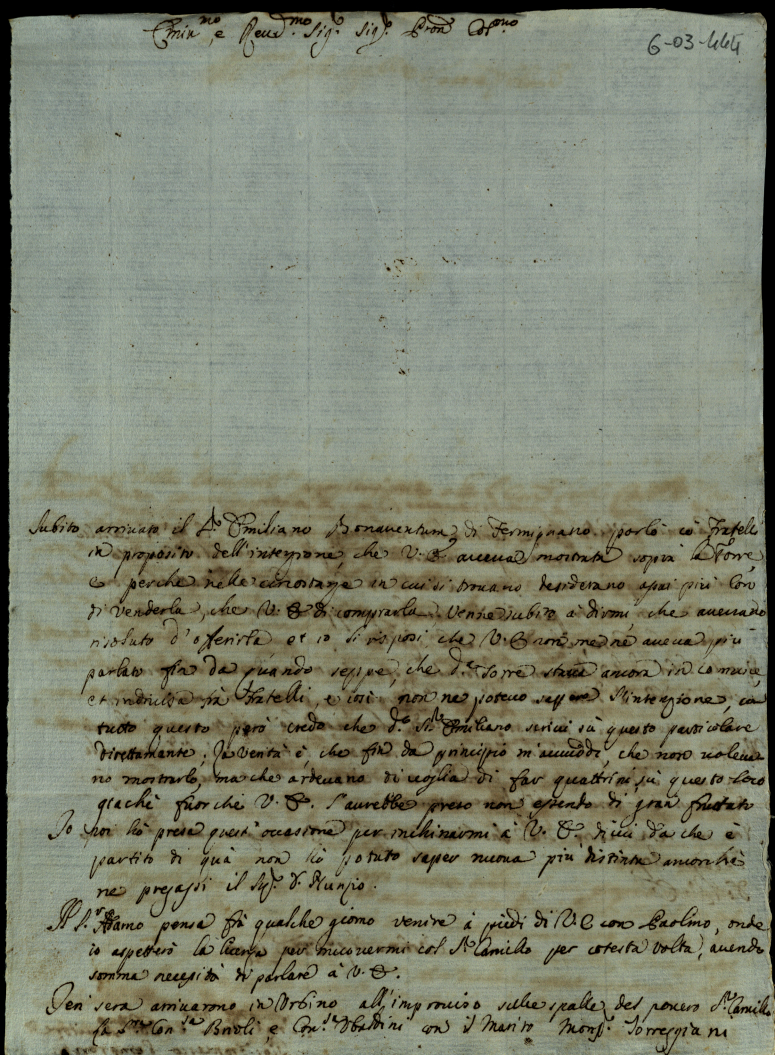 Emin.mo, e Reud.mo Sig.r Sig.r Pron Col.mo
6-03-444
Subito arriuato il S.r Emiliano Bonauentura di Fermignano parlò cò Fratelli
in proposito dell'intenzione, che V.E. aueua mostrata sopra la Torre,
e perche nelle circostanze in cui si trouano desiderano assai più loro
di venderla, che V.E. di comprarla. Venne subito à dirmi, che aueuano
risoluto d'offerirla, et io li risposi che V.E. non me ne aueua più
parlato fin da quando seppe, che d.a Torre staua ancora in comune,
et indiuisa frà Fratelli, e così non ne poteuo sapere l'intenzione, con
tutto questo però credo che d.o S.r Emiliano scriui sù questo particolare
direttamente; la verità è, che fin da principio m'accuddi, che non uoleua-
no mostrarlo, ma che ardeuano di uoglia di far quattrini sù questo loco
giache fuorche V.E. l'aurebbe preso non essendo di gran fruttato
Io poi hò presa quest'occasione per inchinarmi à V.E. di cui da che è
partito di quà non hò potuto saper nuoua più distinta ancorche
ne pregassi il Sig.r D. Nunzio.
Il S.r Adamo pensa frà qualche giorno venire à piedi di V.E. con Paolino, onde
io aspetterò la licenza per muouermi col S.r Camillo per cotesta volta, auendo
somma necessità di parlare à V.E.
Jeri sera arriuarono in Urbino all'improuiso sulle spalle del pouero S.r Camillo
la Con.sa Brioli, e Con.sa Ubaldini con il Marito Mons.r Torreggiani